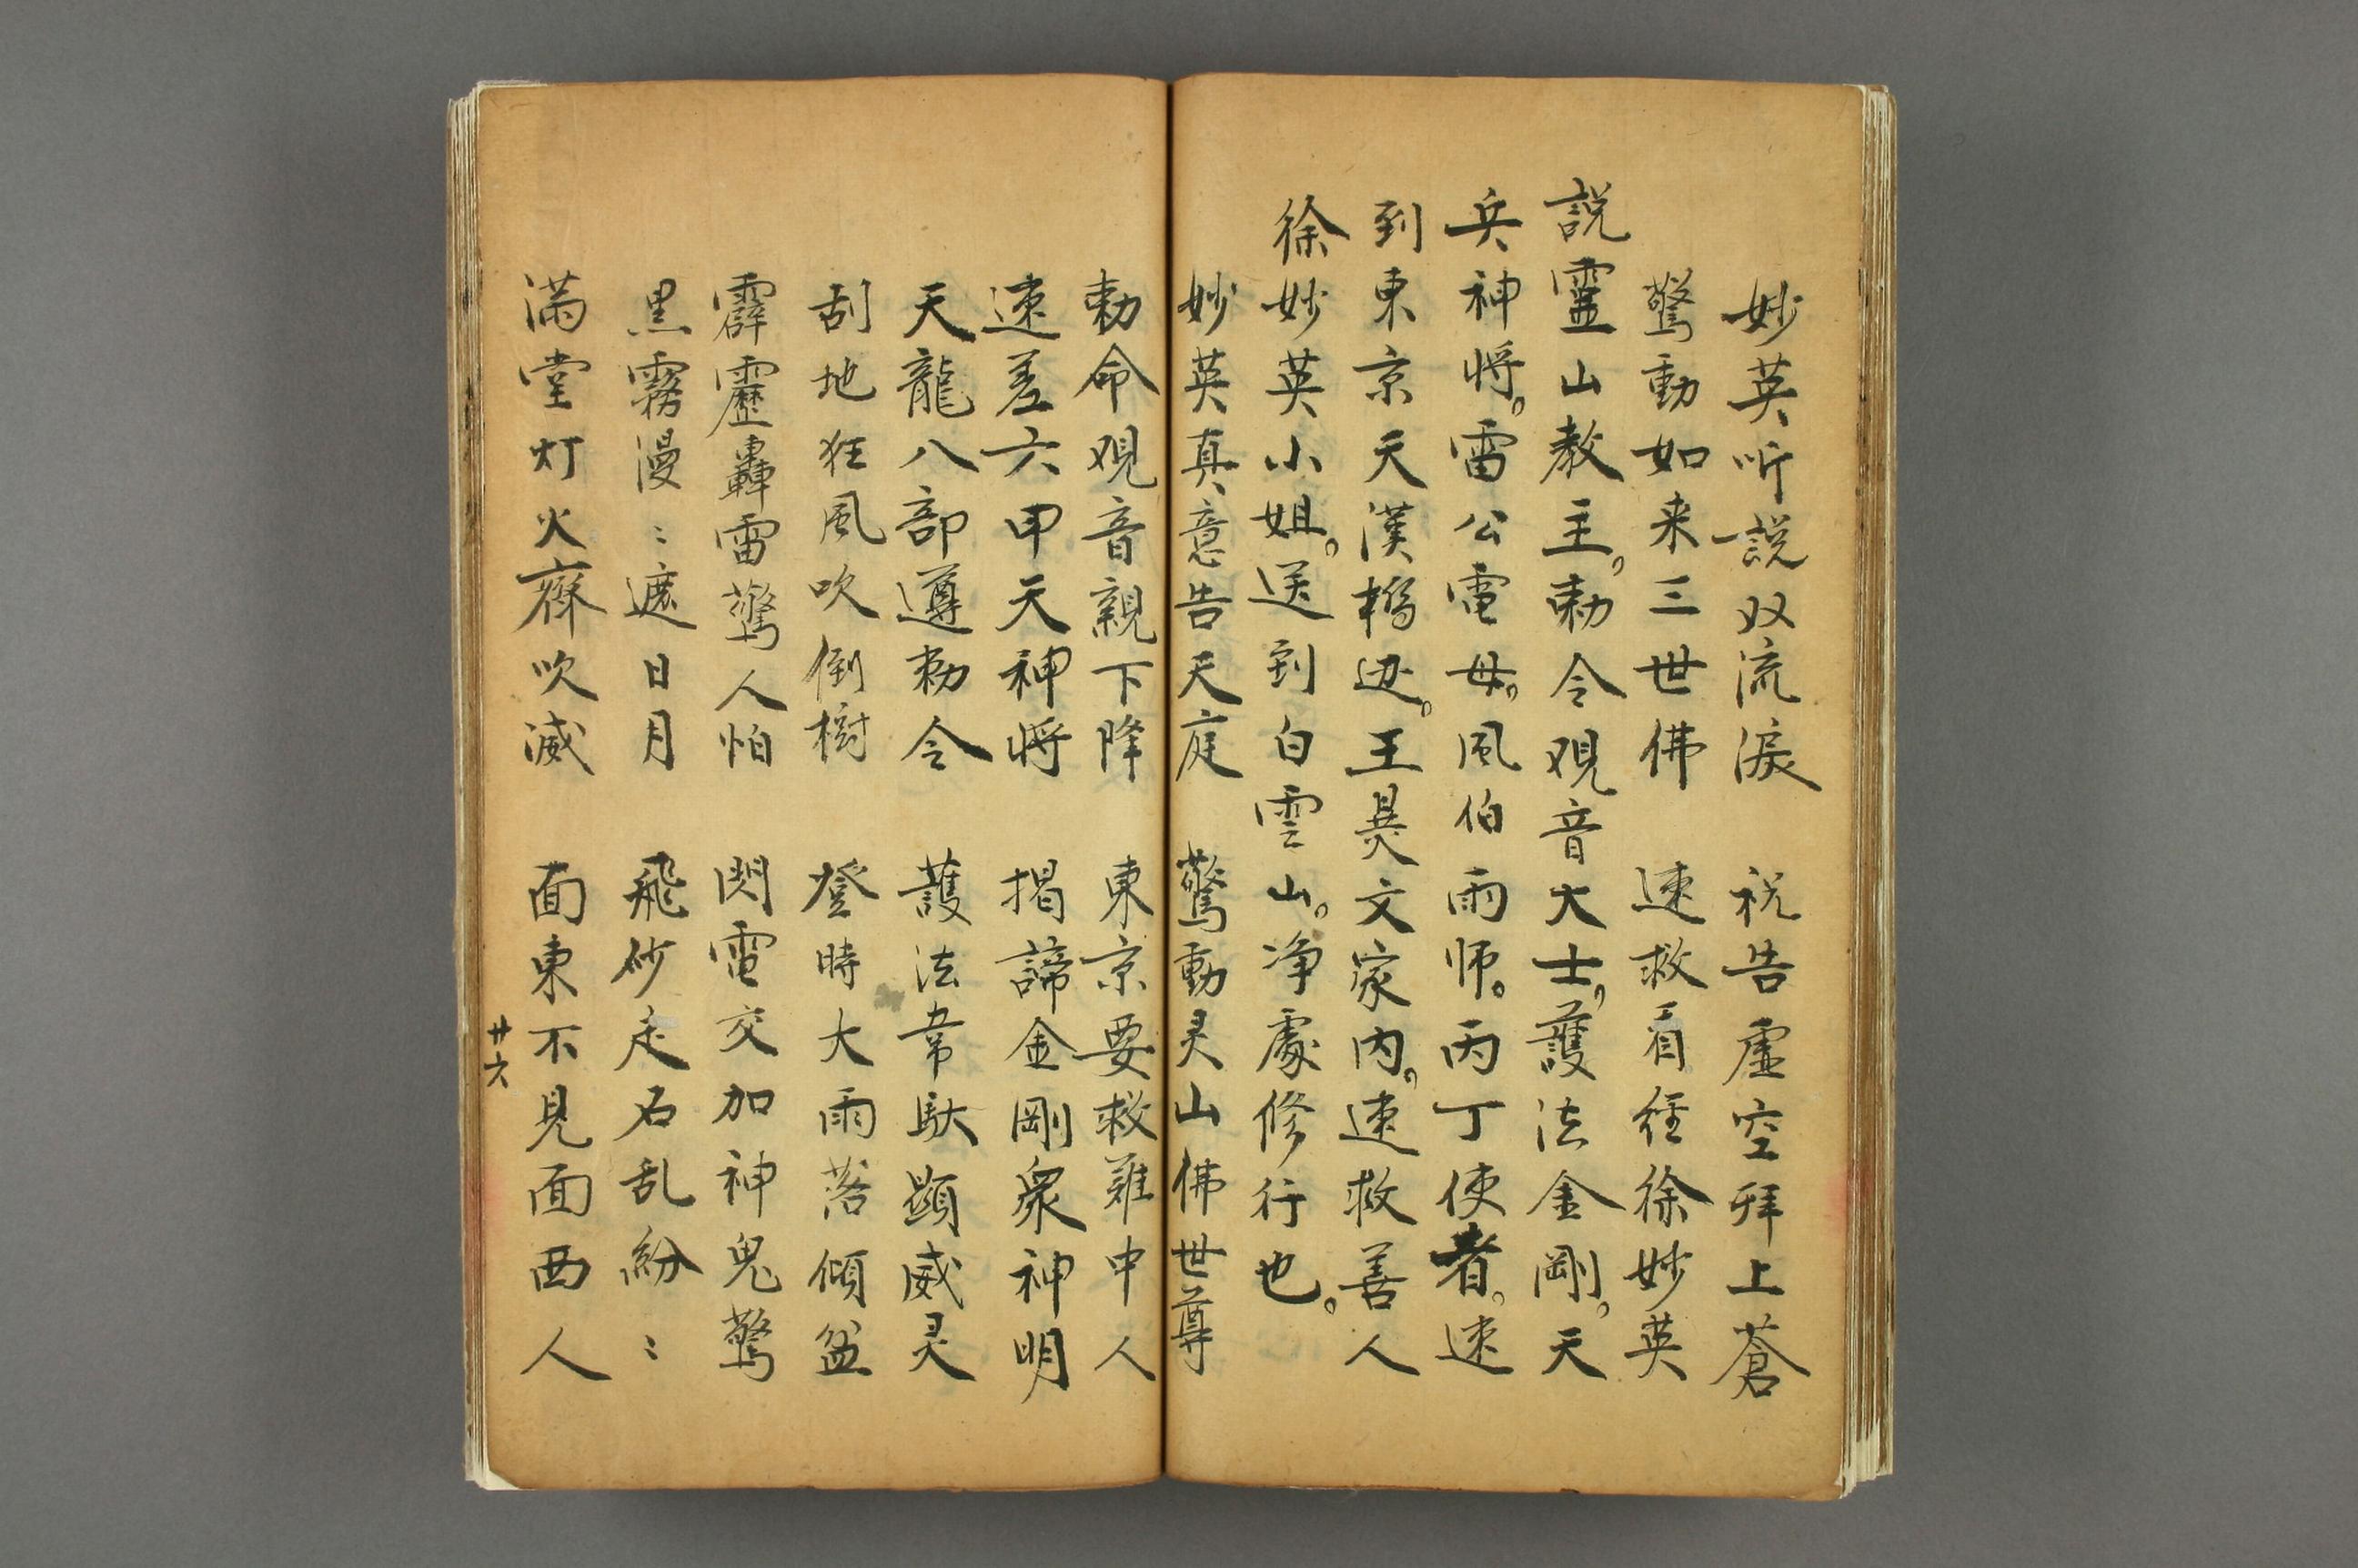 妙英听說双流淚　祝告虛空拜上蒼
驚動如来三世佛　速救看経徐妙英
說靈山教主。勅令观音大士。護法金剛。天
兵神将。雷公電母。风伯雨师。丙丁使者。速
到東京天漢橋边。王員文家内。速救善人
徐妙英小姐。送到白雲山。净處修行也。
妙英真意告天庭　驚動灵山佛世尊
勅命观音親下降　東京要救難中人
速差六甲天神将　揭諦金剛衆神明
天龍八部遵勅令　護法韋馱顯威灵
刮地狂風吹倒樹　登時大雨落傾盆
霹靂轟雷驚人怕　閃電交加神鬼驚
黑霧漫〻遮日月　飛砂走石乱紛〻
满堂灯火齊吹滅　面東不見面西人
廿六